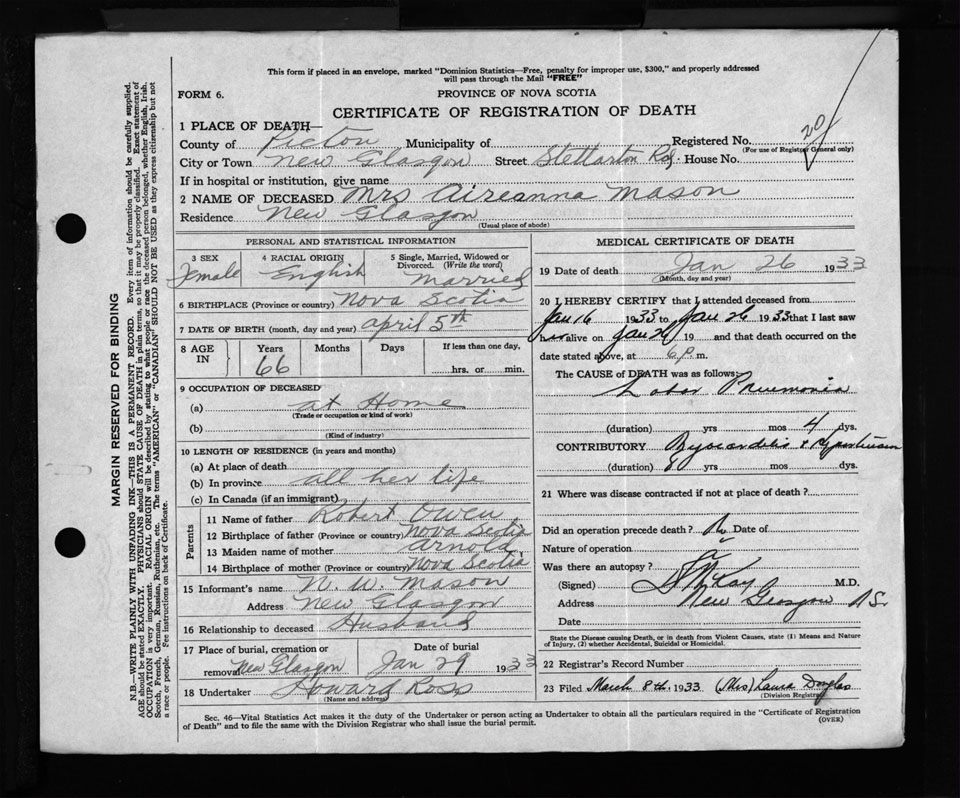 This form if placed in an envelope, marked "Dominion Statistics—Free, penalty for improper use, $300," and properly addressed
will pass through the Mail "FREE"
FORM 6.
PROVINCE OF NOVA SCOTIA
CERTIFICATE OF REGISTRATION OF DEATH
1 PLACE OF DEATH—
County of Pictou Municipality of Registered No. 20
(For use of Registrar General only)
City or Town New Glasgow Street Stellarton Rd. House No.
If in hospital or institution, give name
2 NAME OF DECEASED Mrs Aireanna Mason
Residence New Glasgow
(Usual place of abode)
PERSONAL AND STATISTICAL INFORMATION
3 SEX 4 RACIAL ORIGIN 5 Single, Married, Widowed or
Divorced. (Write the word)
Female English Married
6 BIRTHPLACE (Province or country) Nova Scotia
7 DATE OF BIRTH (month, day and year) April 5th
8 AGE IN Years Months Days If less than one day,
66 hrs. or min.
9 OCCUPATION OF DECEASED
(a) at Home
(Trade or occupation or kind of work)
(b)
(Kind of industry)
10 LENGTH OF RESIDENCE (in years and months)
(a) At place of death
(b) In province all her life
(c) In Canada (if an immigrant)
Parents
11 Name of father Robert Owen
12 Birthplace of father (Province or country) Nova Scotia
13 Maiden name of mother Arnold
14 Birthplace of mother (Province or country) Nova Scotia
15 Informant's name N. W. Mason
Address New Glasgow
16 Relationship to deceased Husband
17 Place of burial, cremation or Date of burial
removal New Glasgow Jan 29 1933
18 Undertaker Howard Ross
(Name and address)
MEDICAL CERTIFICATE OF DEATH
19 Date of death Jan 26 1933
(Month, day and year)
20 I HEREBY CERTIFY that I attended deceased from
Jan 16 1933 to Jan 26 1933 that I last saw
alive on Jan 26 19 and that death occurred on the
date stated above, at 6 P m.
The CAUSE of DEATH was as follows:
Lobar Pneumonia
(duration) yrs mos 4 dys.
CONTRIBUTORY Myocarditis +
(duration) 8 yrs mos dys.
21 Where was disease contracted if not at place of death?
Did an operation precede death? No Date of
Nature of operation
Was there an autopsy?
(Signed) McKay M.D.
Address New Glasgow NS.
Date
State the Disease causing Death, or in death from Violent Causes, state (1) Means and Nature
of Injury, (2) whether Accidental, Suicidal or Homicidal.
22 Registrar's Record Number
23 Filed March 8th. 1933 (Mrs) Laura Douglas
(Division Registrar)
Sec. 46—Vital Statistics Act makes it the duty of the Undertaker or person acting as Undertaker to obtain all the particulars required in the "Certificate of Registration
of Death" and to file the same with the Division Registrar who shall issue the burial permit.
(OVER)
MARGIN RESERVED FOR BINDING
N.B.—WRITE PLAINLY WITH UNFADING INK—THIS IS A PERMANENT RECORD. Every item of information should be carefully supplied.
AGE should be stated EXACTLY. PHYSICIANS should STATE CAUSE OF DEATH in plain terms, so that it may be properly classified. Exact statement of
OCCUPATION is very important. RACIAL ORIGIN will be described by stating to what people or race the deceased person belonged, whether English, Irish,
Scotch, French, German, Russian, Ruthenian, etc. The terms "AMERICAN" or "CANADIAN" SHOULD NOT BE USED as they express citizenship but not
a race or people. See instructions on back of Certificate.